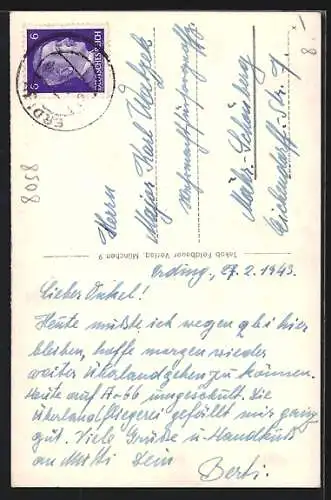 6 6
DEUTSCHES REICH
ERDI
8508
8.
Herrn
Major Karl
Mähr.-Schönberg
Eichendorff-Str. 7
Jakob Feldbauer Verlag, München 9
Erding, 27.2.1943.
Lieber Onkel!
Heute mußte ich wegen qbi hier
bleiben, hoffe morgen wieder
weiter überlandgehen zu können.
Heute auf Ar 66 umgeschult. Die
Überlandfliegerei gefällt mir ganz
gut. Viele Grüsse u. Handküsse
an Mutti Dein
Berti.